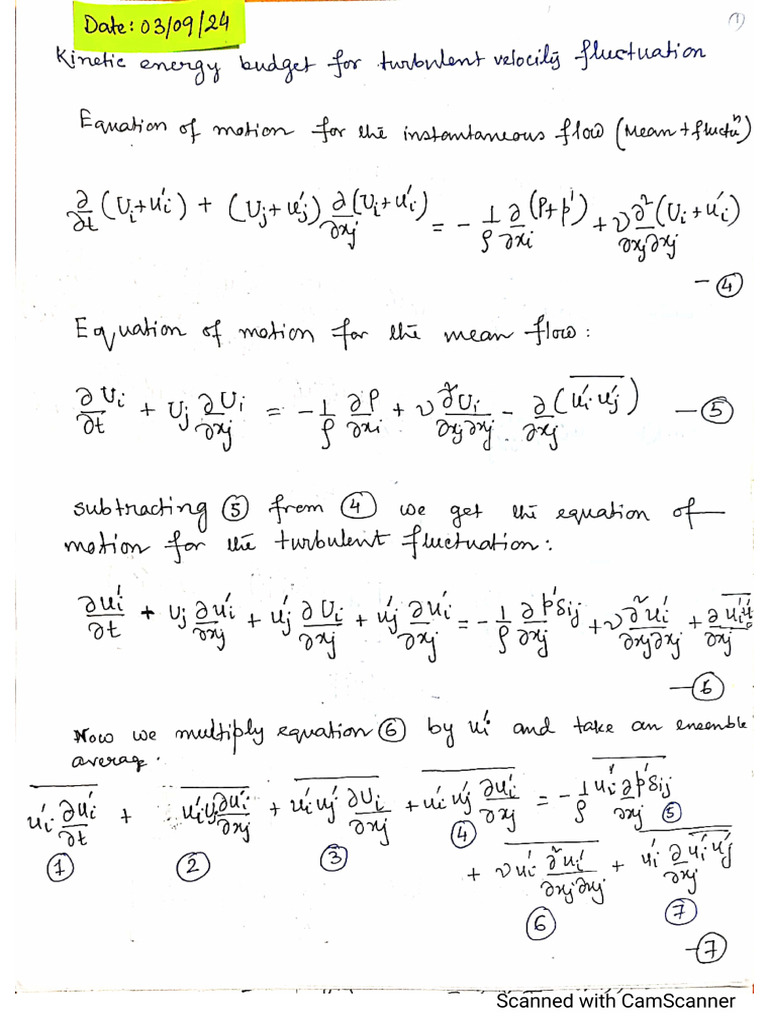 Date: 03/09/24
(1)
Kinetic energy budget for turbulent velocity fluctuation
Equation of motion for the instantaneous flow (Mean + fluctuⁿ)
∂/∂t (Uᵢ+u'ᵢ) + (Uⱼ+u'ⱼ) ∂(Uᵢ+u'ᵢ)/∂xⱼ = - 1/ρ ∂/∂xᵢ (P+p') + ν ∂²/∂xⱼ∂xⱼ (Uᵢ+u'ᵢ)
- ④
Equation of motion for the mean flow:
∂Uᵢ/∂t + Uⱼ ∂Uᵢ/∂xⱼ = - 1/ρ ∂P/∂xᵢ + ν ∂²Uᵢ/∂xⱼ∂xⱼ - ∂/∂xⱼ (u'ᵢ u'ⱼ)‾ - ⑤
subtracting ⑤ from ④ we get the equation of
motion for the turbulent fluctuation:
∂u'ᵢ/∂t + Uⱼ ∂u'ᵢ/∂xⱼ + u'ⱼ ∂Uᵢ/∂xⱼ + u'ⱼ ∂u'ᵢ/∂xⱼ = - 1/ρ ∂p'δij/∂xⱼ + ν ∂²u'ᵢ/∂xⱼ∂xⱼ +
- ⑥
Now we multiply equation ⑥ by u'ᵢ and take an ensemble
averag.
u'ᵢ ∂u'ᵢ/∂t + u'ᵢUⱼ ∂u'ᵢ/∂xⱼ + u'ᵢu'ⱼ ∂Uᵢ/∂xⱼ + u'ᵢu'ⱼ ∂u'ᵢ/∂xⱼ = - 1/ρ u'ᵢ ∂p'δij/∂xⱼ
① ② ③ ④ ⑤
+ ν u'ᵢ ∂²u'ᵢ/∂xⱼ∂xⱼ + u'ᵢ ∂u'ᵢu'ⱼ/∂xⱼ
⑥ ⑦
- ⑦
Scanned with CamScanner